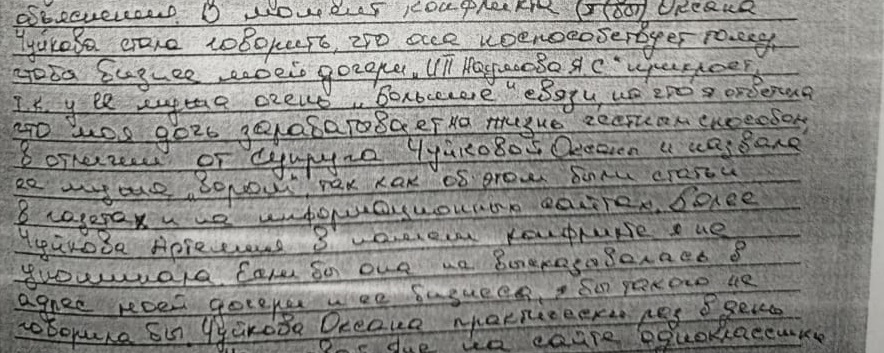 объяснения. В момент конфликта Оксана
Чуйкова стала говорить, что она поспособствует тому,
чтобы бизнес моей дочери „ИП Наумова Я С" прикроет,
т.к. у ее мужа очень „большие" связи, на что я ответила
что моя дочь зарабатовает на жизнь честным способом,
в отличии от супруга Чуйковой Оксаны и назвала
ее мужа „вором", так как об этом были статьи
в газетах и на информационных сайтах. Более
Чуйкова Артема я в нашем конфликте не
упоминала. Если бы она не высказывалась в
адрес моей дочери и ее бизнеса, я бы такого не
говорила бы. Чуйкова Оксана практически раз в день
на сайте одноклассники